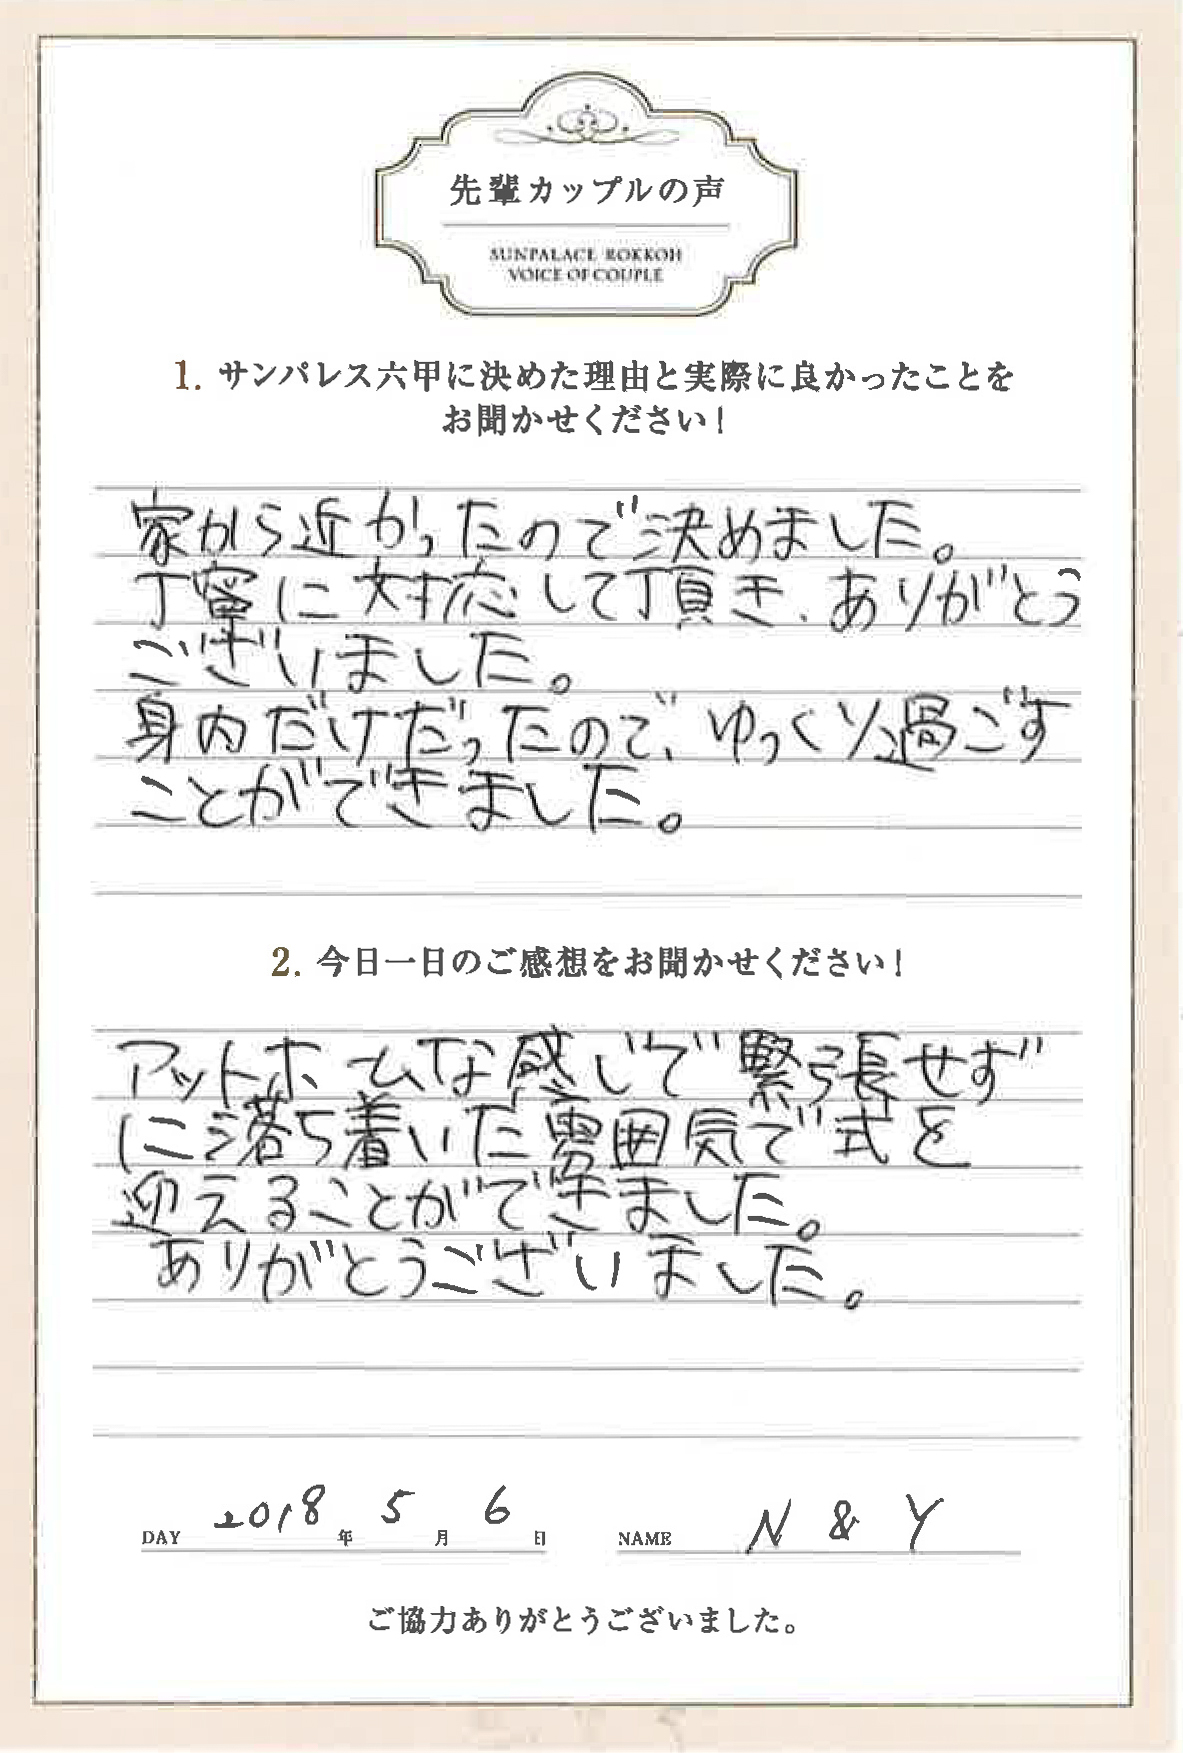 先輩カップルの声
SUNPALACE ROKKOH
VOICE OF COUPLE
1. サンパレス六甲に決めた理由と実際に良かったことを
お聞かせください！
家から近かったので決めました。
丁寧に対応して頂き、ありがとう
ございました。
身内だけだったので、ゆっくり過ごす
ことができました。
2. 今日一日のご感想をお聞かせください！
アットホームな感じで緊張せず
に落ち着いた雰囲気で式を
迎えることができました。
ありがとうございました。
DAY 2018年 5月 6日 NAME N & Y
ご協力ありがとうございました。